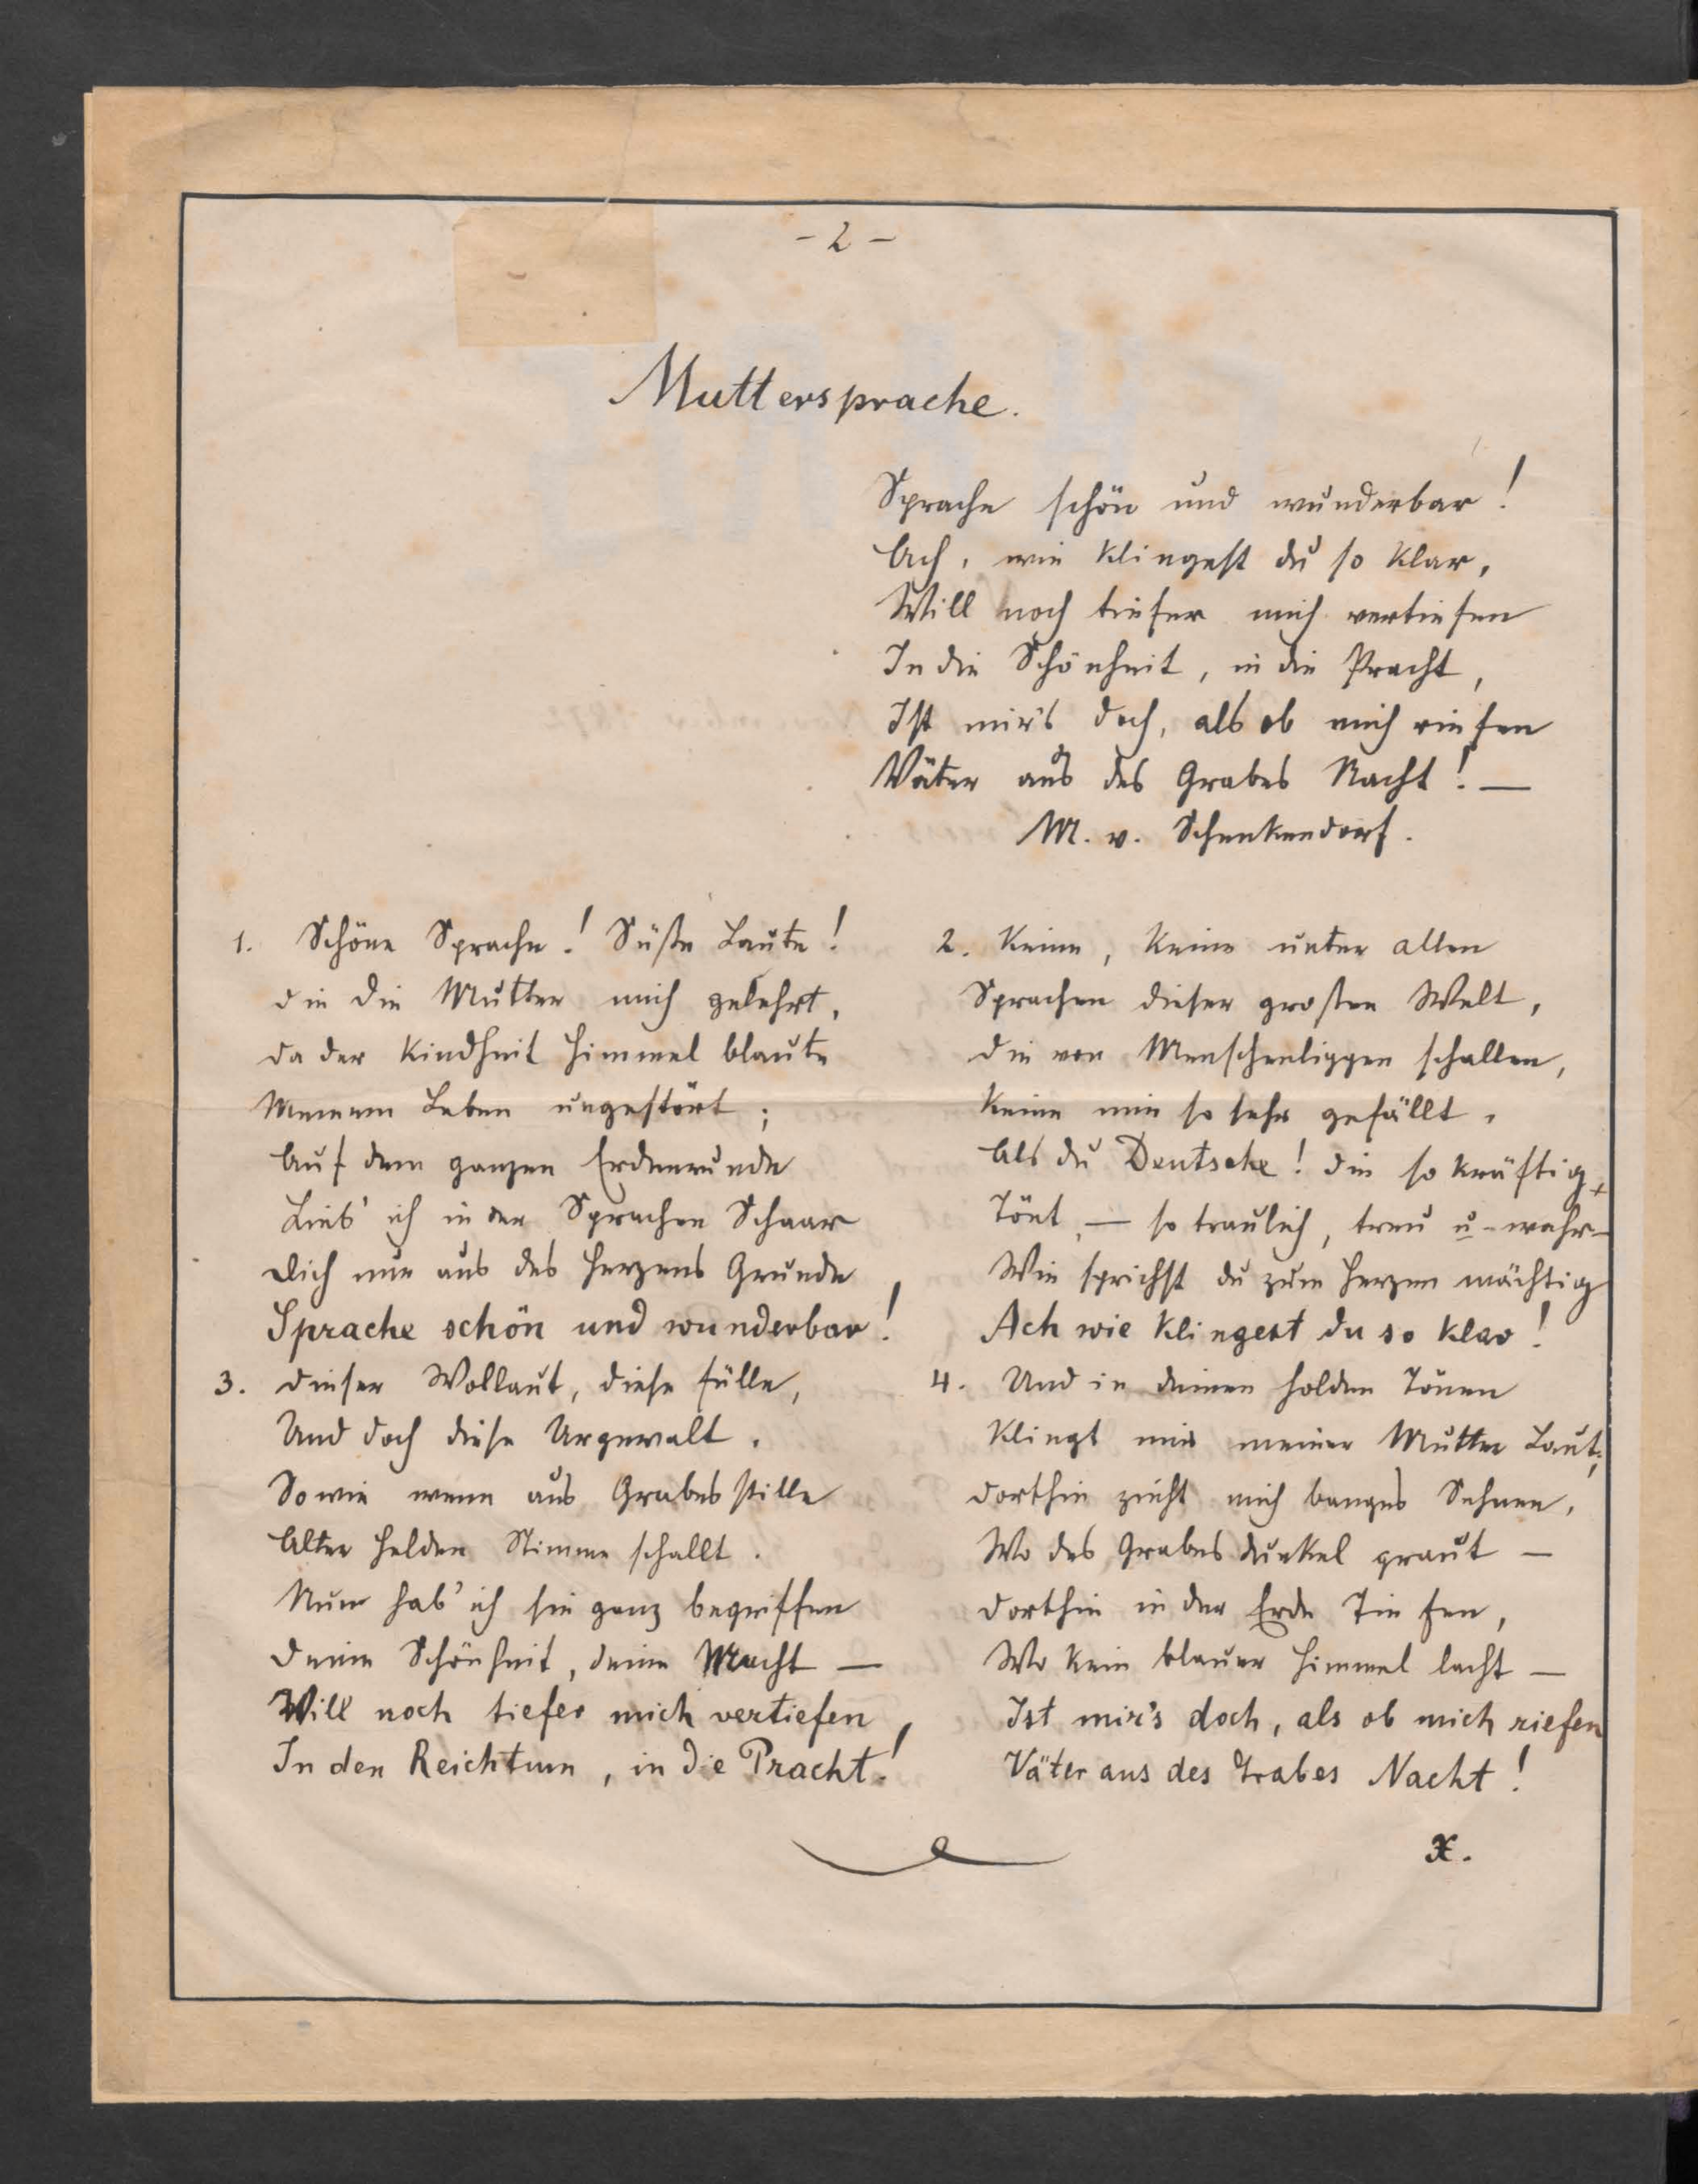 - 2 -
Muttersprache.
Sprache schön und wunderbar!
Ach, wie klingest du so klar,
Will noch tiefer mich vertiefen
In die Schönheit, in die Pracht,
Ist mir's doch, als ob mich riefen
Väter aus des Grabes Nacht! —
M. v. Schenkendorf.
1. Schöne Sprache! Süße Laute!
Die die Mutter mich gelehrt,
Da der Kindheit Himmel blaute
Meinem Leben ungestört;
Auf dem ganzen Erdenrunde
Lieb' ich in der Sprachen Schaar
Dich nur aus des Herzens Grunde
Sprache schön und wunderbar!
2. Keine, keine unter allen
Sprachen dieser großen Welt,
Die von Menschenlippen schallen,
Keine mir so sehr gefällt,
Als du Deutsche! die so kräftig,
Tönt, — so traulich, treu u. wahr —
Wie sprichst du zum Herzen mächtig
Ach wie klingest du so klar!
3. Dieser Wollaut, diese Fülle,
Und doch diese Urgewalt.
So wie wenn aus Grabes stille
Alter Helden Stimme schallt.
Nun hab' ich sie ganz begriffen
Deine Schönheit, deine Macht —
Will noch tiefer mich vertiefen
In den Reichtum, in die Pracht!
4. Und in deinen holden Tönen
Klingt mir meiner Mutter Laut;
Dorthin zieht mich banges Sehnen,
Wo des Grabes dunkel graut —
Dorthin in der Erde Tiefen,
Wo kein blauer Himmel lacht —
Ist mir's doch, als ob mich riefen
Väter aus des Grabes Nacht!
X.